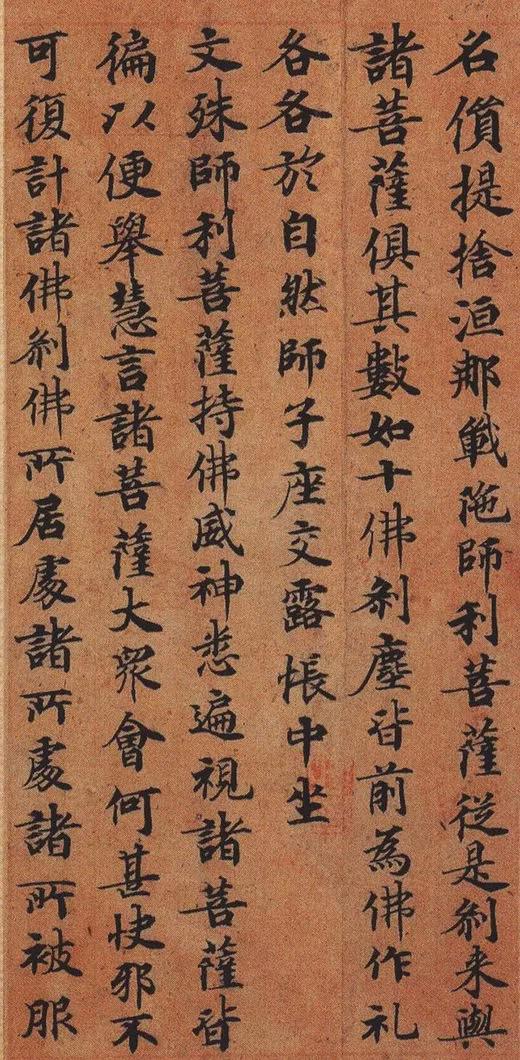 名價提捨洹那戰陁師利菩薩從是剎来與
諸菩薩俱其數如十佛剎塵皆前為佛作礼
各各於自然師子座交露帳中坐
文殊師利菩薩持佛威神悉遍視諸菩薩皆
徧以便舉慧言諸菩薩大眾會何甚快邪不
可復計諸佛剎佛所居處諸所處諸所被服